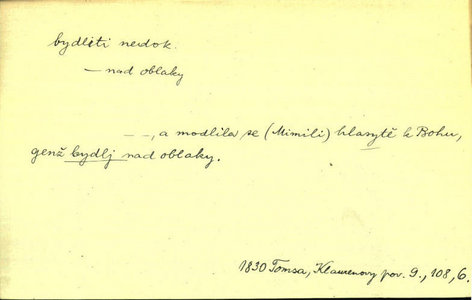 bydliti nedok.
— nad oblaky
— —, a modlila se (Mimili) hlasytě k Bohu,
genž bydlj nad oblaky.
1830 Tomsa, Klaurenovy pov. 9., 108, 6.